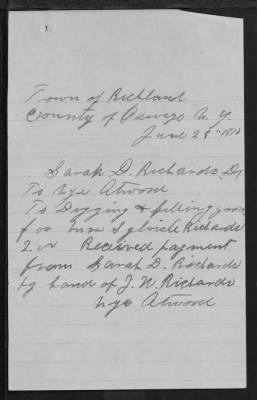 1
Town of Richland
County of Oswego N. Y.
June 28" 1910
Sarah D. Richards Dr
To Nye Atwood
To Digging & filling grave
for Mrs Sylvisle Richards
2.00 Received payment
from Sarah D. Richards
by hand of J. N. Richards
Nye Atwood